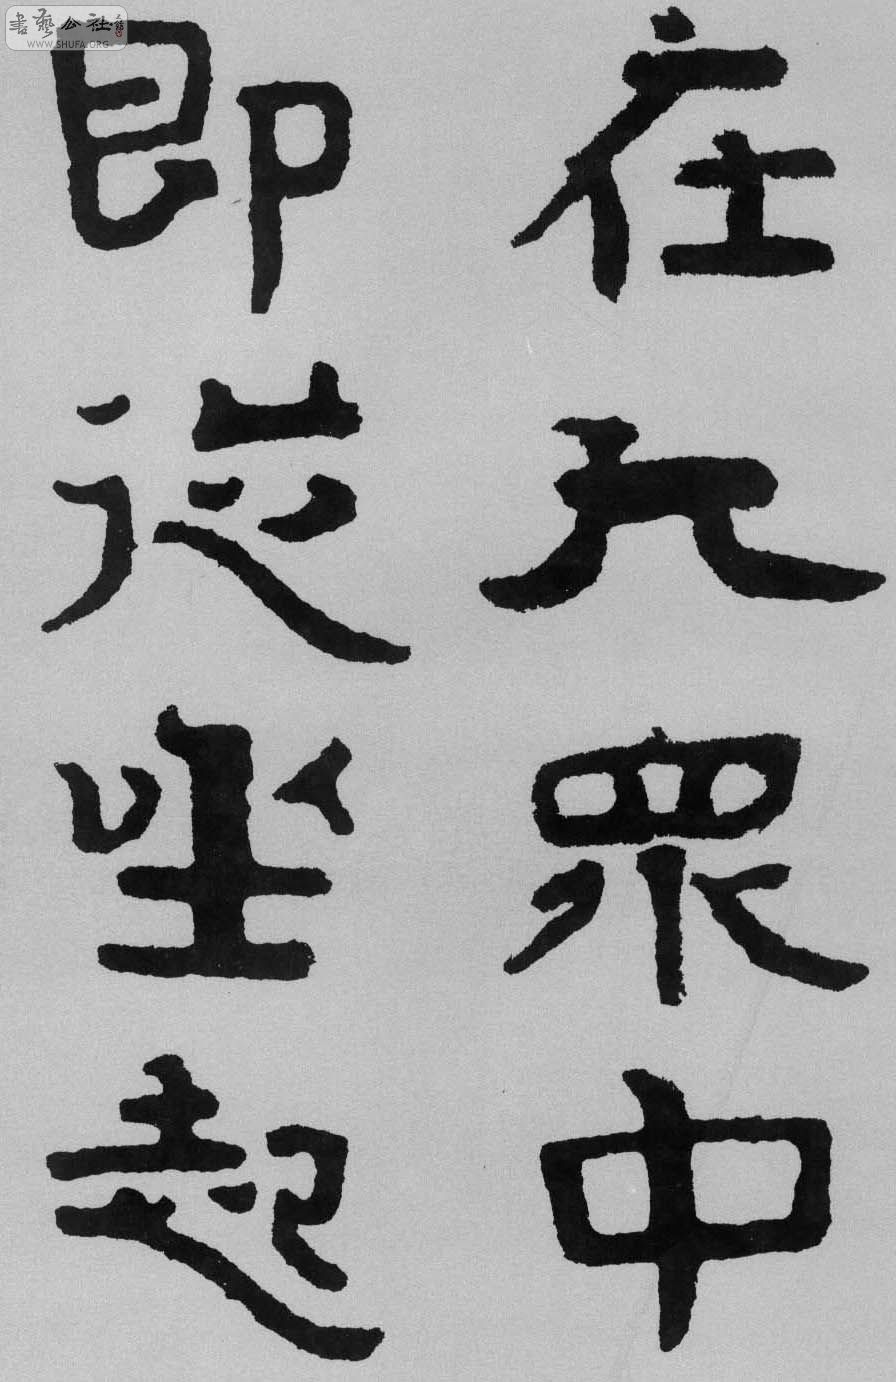 在大眾中
即從坐起
書藝公社
WWW.SHUFA.ORG